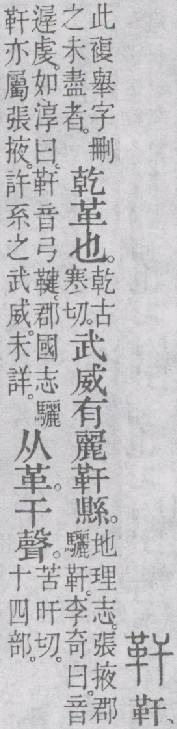 靬 靬、
此複舉字刪之未盡者。乾革也。乾古寒切。武威有麗靬縣。地理志。張掖郡驪靬。李奇曰。音
遟虔。如淳曰。靬音弓鞬。郡國志驪靬亦屬張掖。許系之武威。未詳。从革。干聲。苦旰切。十四部。